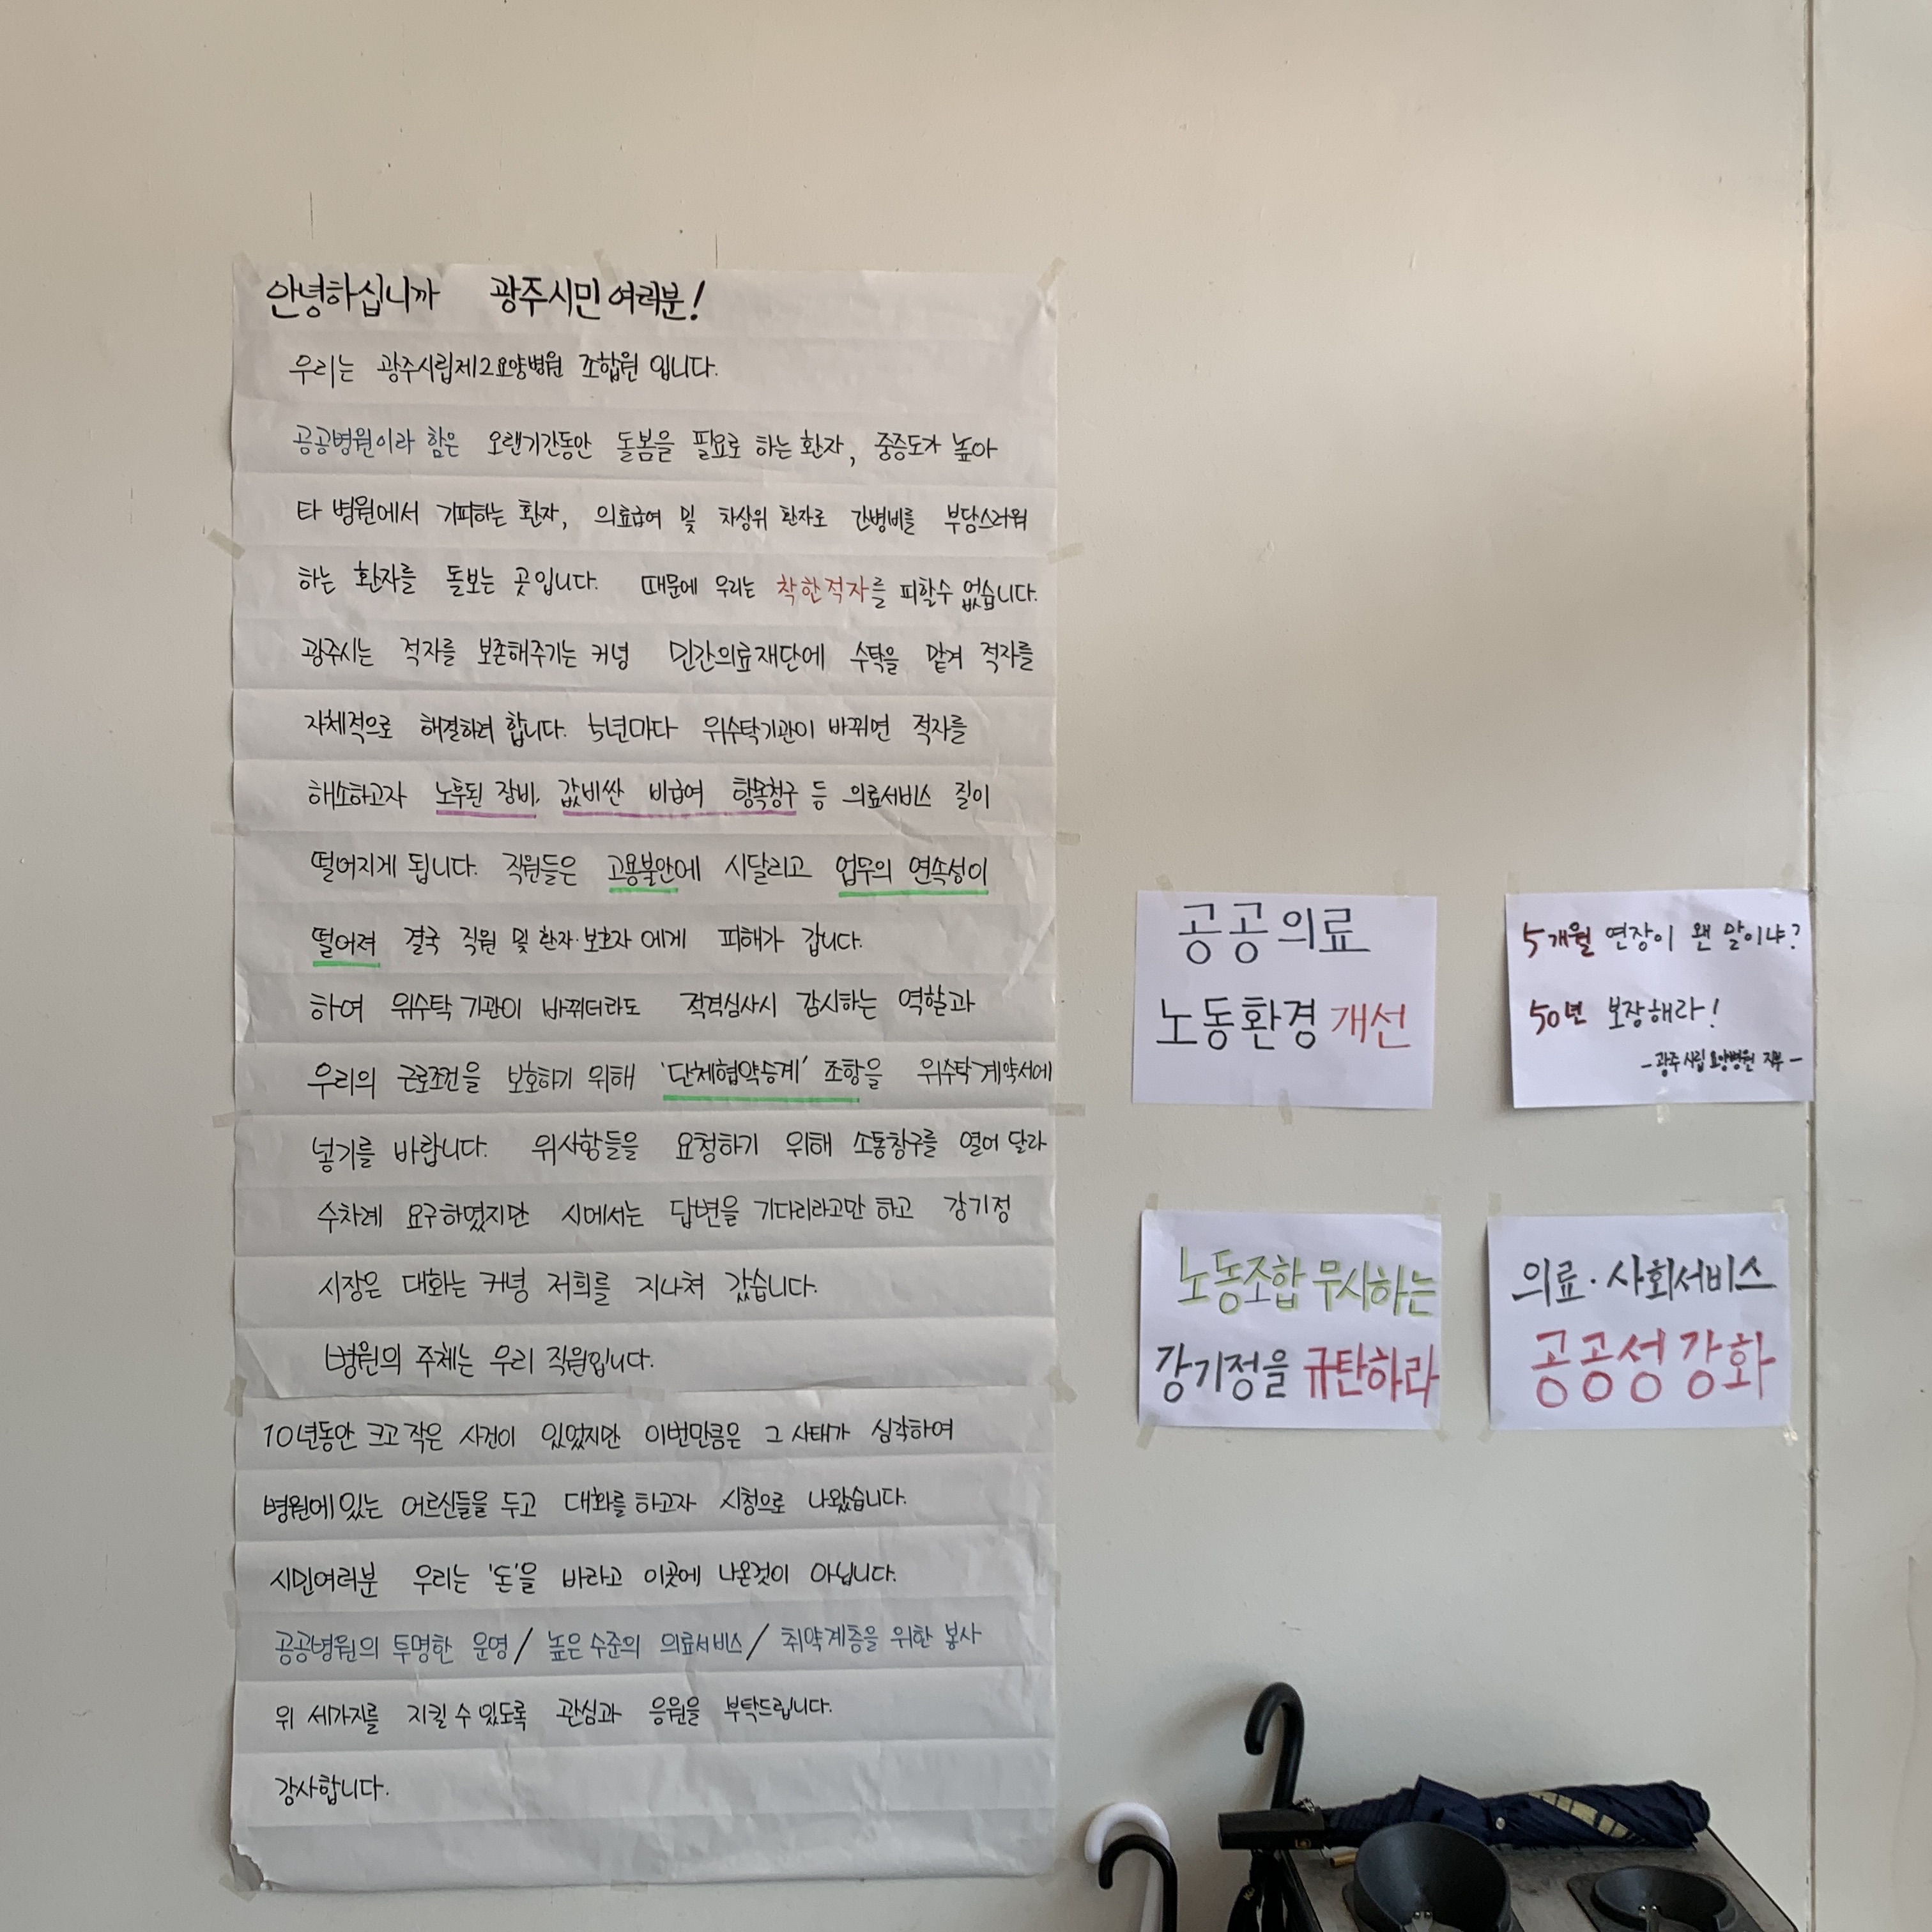 안녕하십니까 광주시민 여러분!
우리는 광주시립제2요양병원 조합원 입니다.
공공병원이라 함은 오랜기간동안 돌봄을 필요로 하는 환자, 중증도가 높아
타 병원에서 기피하는 환자, 의료급여 및 차상위 환자로 간병비를 부담스러워
하는 환자를 돌보는 곳입니다. 때문에 우리는 착한적자를 피할수 없습니다.
광주시는 적자를 보존해주기는 커녕 민간의료재단에 수탁을 맡겨 적자를
자체적으로 해결하려 합니다. 5년마다 위수탁기관이 바뀌면 적자를
해소하고자 노후된 장비, 값비싼 비급여 항목청구 등 의료서비스 질이
떨어지게 됩니다. 직원들은 고용불안에 시달리고 업무의 연속성이
떨어져 결국 직원 및 환자·보호자에게 피해가 갑니다.
하여 위수탁 기관이 바뀌더라도 적격심사시 감시하는 역할과
우리의 근로조건을 보호하기 위해 '단체협약승계' 조항을 위수탁계약서에
넣기를 바랍니다. 위사항들을 요청하기 위해 소통창구를 열어 달라
수차례 요구하였지만 시에서는 답변을 기다리라고만 하고 강기정
시장은 대화는 커녕 저희를 지나쳐 갔습니다.
병원의 주체는 우리 직원입니다.
10년동안 크고 작은 사건이 있었지만 이번만큼은 그 사태가 심각하여
병원에 있는 어르신들을 두고 대화를 하고자 시청으로 나왔습니다.
시민여러분 우리는 '돈'을 바라고 이곳에 나온것이 아닙니다.
공공병원의 투명한 운영/ 높은 수준의 의료서비스/ 취약계층을 위한 봉사
위 세가지를 지킬 수 있도록 관심과 응원을 부탁드립니다.
감사합니다.
공공의료
노동환경 개선
5개월 연장이 왠 말이냐?
50년 보장해라!
- 광주시립요양병원 지부 -
노동조합 무시하는
강기정을 규탄하라
의료·사회서비스
공공성 강화